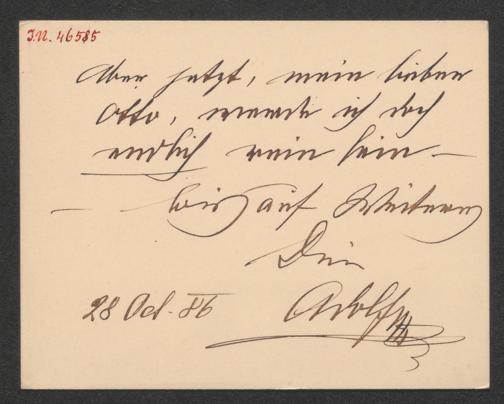 I.N. 46585
Aber jetzt, mein lieber
Otto, werde ich doch
endlich rein sein —
— bis auf Weiteres
Dein
28 Oct. 86 Adolf